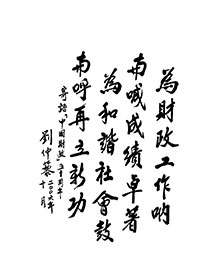 為財政工作吶
喊成績卓著
為和諧社會鼓
呼再立新功
寄語《中國財政》五十周年
劉仲藜
二〇〇六年十月